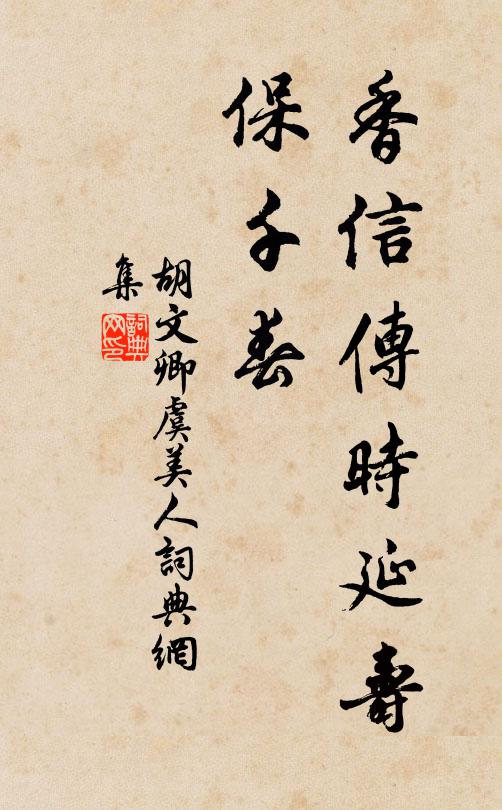 香信傳時延壽
保千春
胡文卿虞美人詞典網
集
詞典
网印